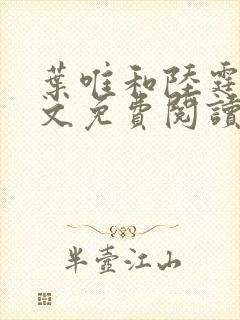 葉唯和陸霆
文免費閱讀
半壺江山